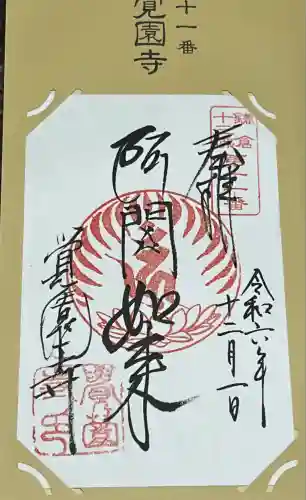 十一番
覚園寺
奉拝
鎌倉十三佛
十一番
阿閦如来
令和六年
十二月一日
覺園寺
覺園寺印